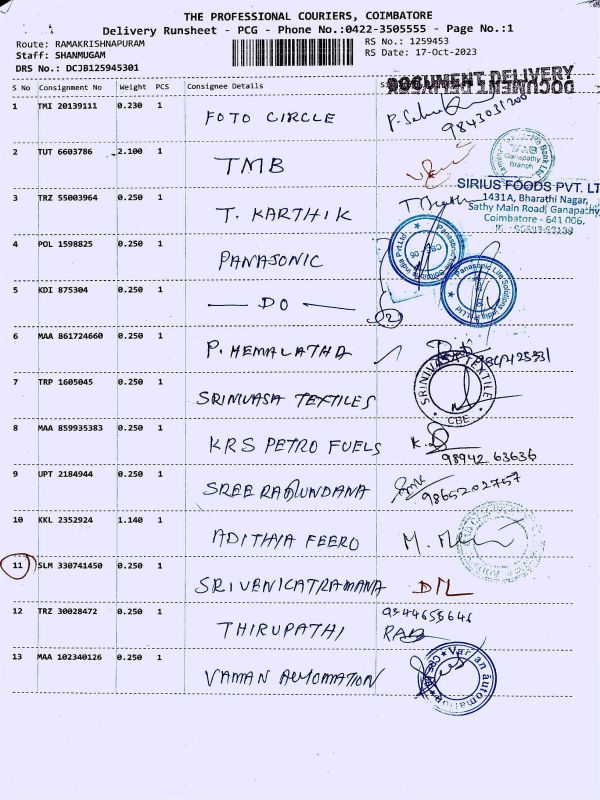 THE PROFESSIONAL COURIERS, COIMBATORE
Delivery Runsheet - PCG - Phone No.:0422-3505555 - Page No.:1
Route: RAMAKRISHNAPURAM RS No.: 1259453
Staff: SHANMUGAM RS Date: 17-Oct-2023
DRS No.: DCJB125945301
DOCUMENT DELIVERY
S No Consignment No Weight PCS Consignee Details
1 TMI 20139111 0.230 1 FOTO CIRCLE
2 TUT 6603786 2.100 1 TMB
Ganapathy
Branch
SIRIUS FOODS PVT. LT
1431A, Bharathi Nagar,
Sathy Main Road, Ganapathy
Coimbatore - 641 006.
3 TRZ 55003964 0.250 1 T. KARTHIK
4 POL 1598825 0.250 1 PANASONIC
Panasonic Life Solutions India Pvt.Ltd
CBE - 06
5 KDI 875304 0.250 1 — DO —
2
6 MAA 861724660 0.250 1 P. HEMALATHA
7 TRP 1605045 0.250 1 SRINIVASA TEXTILES
SRINIVASA TEXTILE
CBE
8 MAA 859935383 0.250 1 KRS PETRO FUELS
98942 63636
9 UPT 2184944 0.250 1
9865202757
10 KKL 2352924 1.140 1 ADITHYA FEERO
11 SLM 330741450 0.250 1 SRIVENKATRAMANA
12 TRZ 30028472 0.250 1 THIRUPATHI
9344655646
13 MAA 102340126 0.250 1 VAMAN AUTOMATION